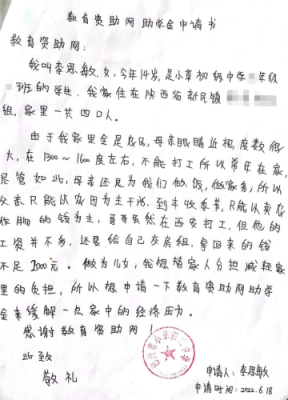 教育资助网助学金申请书
教育资助网：
我叫李思敏，女，今年14岁，是小章初级中学 年级
班的学生，我家住在陕西省新民镇
组，家里一共四口人。
由于我家里全是农民，母亲眼睛近视度数很
大，在1300～1600度左右，不能打工所以常年在家，
尽管如此，母亲还是为我们做饭，做家务，所以
父亲只能以农田为主干活，到丰收季节，只能以卖农
作物的钱为主，哥哥虽然在西安打工，但他的
工资并不多，还要给自己房租，拿回来的钱
不足2000元。做为儿女，我想替家人分担减轻家
里的负担，所以想申请一下教育资助网助学
金来缓解一点家中的经济压力。
感谢教育资助网！
此致
敬礼
申请人：李思敏
申请时间：2022.6.18